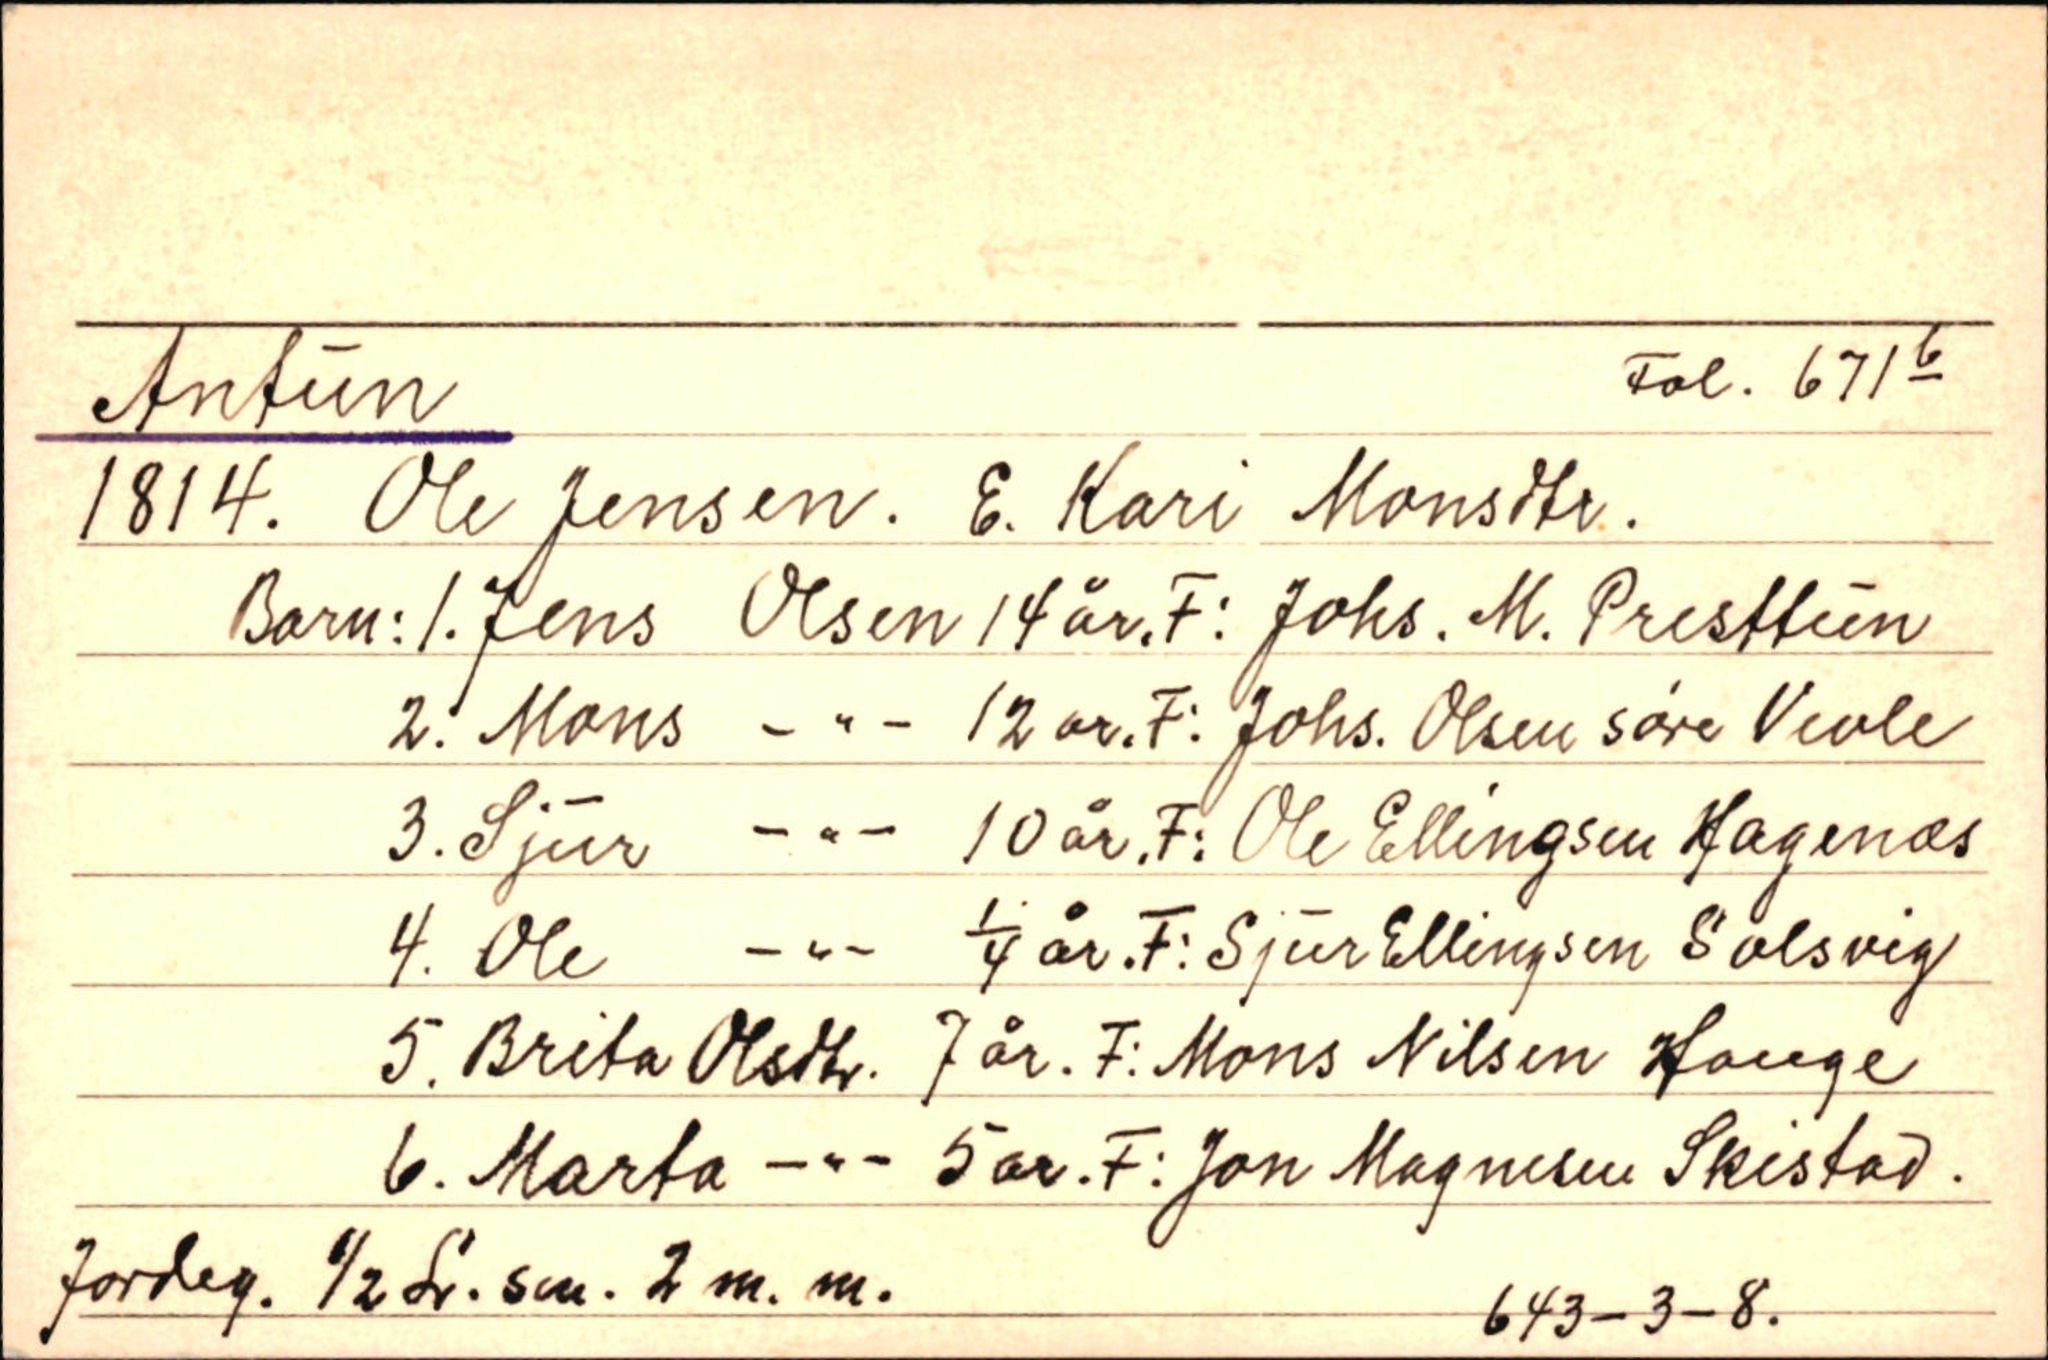 Antūn Fol. 671b
1814. Ole Jensen. E. Kari Monsdtr.
Barn: 1. Jens Olsen 14 år. F: Johs. M. Presttūn
2. Mons -"- 12 år. F: Johs. Olsen søre Veole
3. Sjūr -"- 10 år. F: Ole Ellingsen Hagenæs
4. Ole -"- 1/4 år. F: Sjūr Ellingsen Solsvig
5. Brita Olsdtr. 7 år. F: Mons Nilsen Hauge
6. Marta -"- 5 år. F: Jon Magnesen Skistad.
Jordeg. 1/2 L. sm. 2 m. m.
643-3-8.